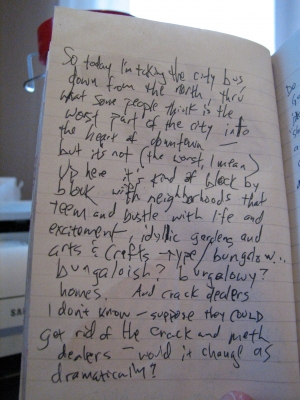 So today I'm taking the city bus
down from the north, thru
what some people think is the
worst part of the city into
the heart of downtown —
but it's not (the worst, I mean)
Up here it's kind of block by
block with neighborhoods that
teem and bustle with life and
excitement, idyllic gardens and
arts & crafts-type/bungalow...
bungaloish? bungalowy?
homes. And crack dealers
I don't know — suppose they COULD
get rid of the crack and meth
dealers — would it change as
dramatically?
SA